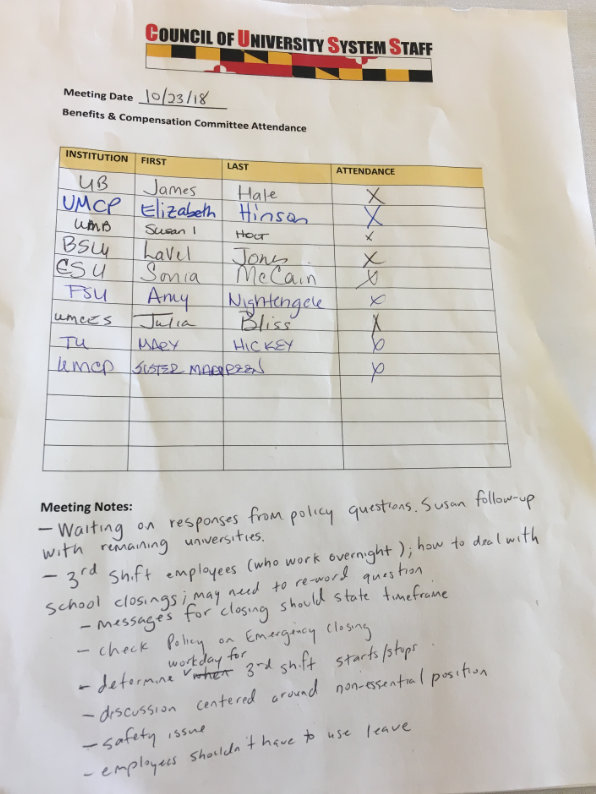 COUNCIL OF UNIVERSITY SYSTEM STAFF
Meeting Date 10/23/18
Benefits & Compensation Committee Attendance
INSTITUTION FIRST LAST ATTENDANCE
UB James Hale X
UMCP Elizabeth Hinson X
UMB Susan Holt X
BSU LaVel Jones X
CSU Sonia McCain X
FSU Amy Nightengele X
UMCES Julia Bliss X
TU MARY HICKEY X
UMCP SISTER MAUREEN X
Meeting Notes:
- Waiting on responses from policy questions. Susan follow-up
with remaining universities.
- 3rd Shift employees (who work overnight); how to deal with
school closings; may need to re-word question
- messages for closing should state timeframe
- check Policy on Emergency Closing
workday for
- determine when 3rd shift starts/stops
- discussion centered around non-essential position
- safety issue
- employees shouldn't have to use leave